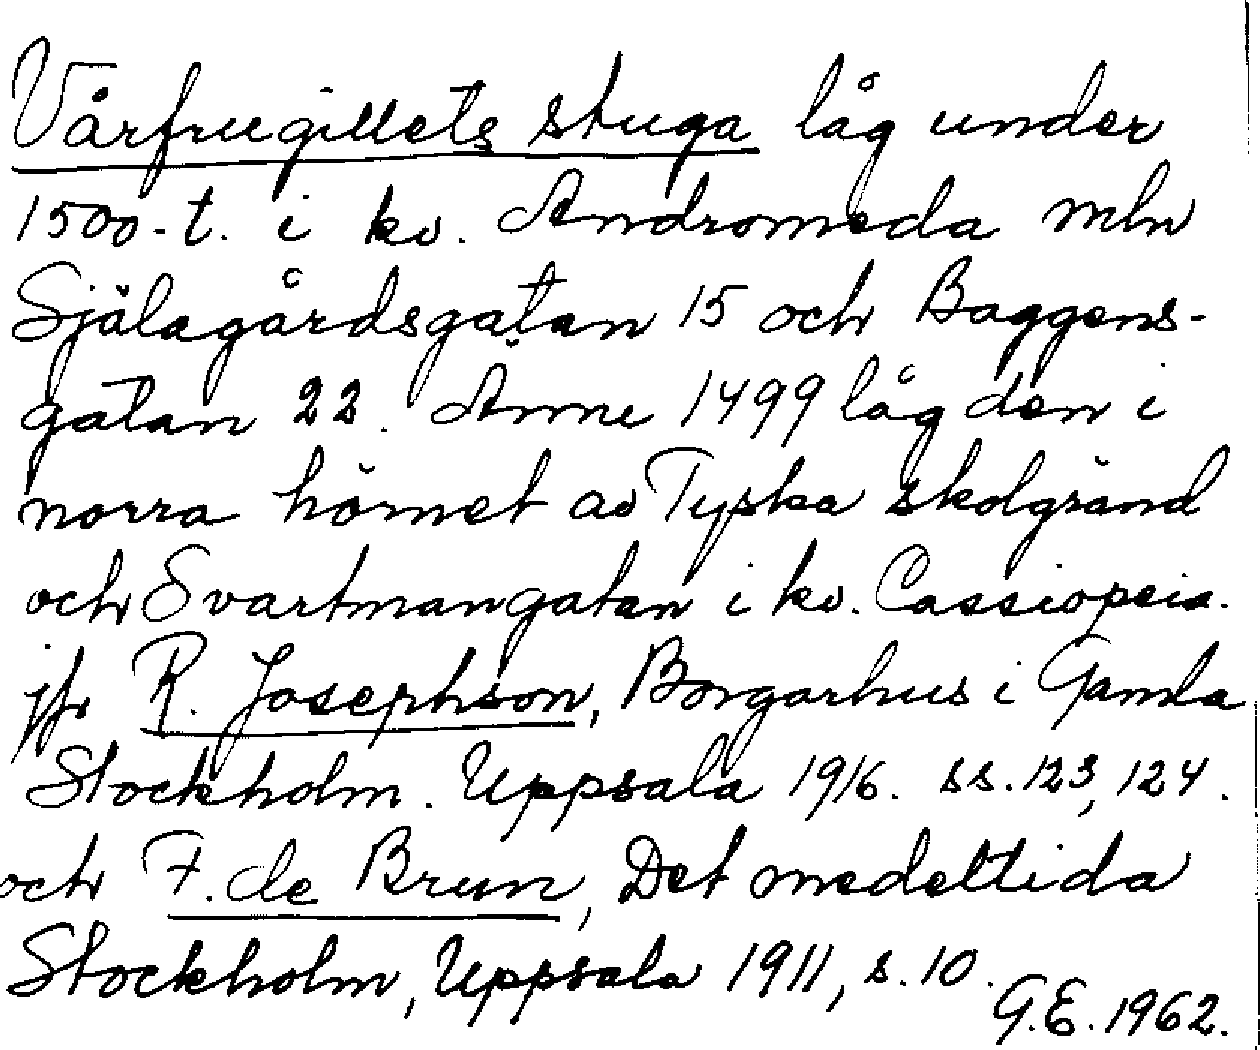 Vårfrugillets stuga låg under
1500-t. i kv. Andromeda mln
Själagårdsgatan 15 och Baggens-
gatan 22. Anne 1499 låg den i
norra hörnet av Tyska skolgränd
och Svartmangatan i kv. Cassiopeia.
jfr R. Josephson, Borgarhus i Gamla
Stockholm. Uppsala 1916. ss. 123, 124.
och F. de Brun, Det medeltida
Stockholm, Uppsala 1911, s. 10.
G.E. 1962.